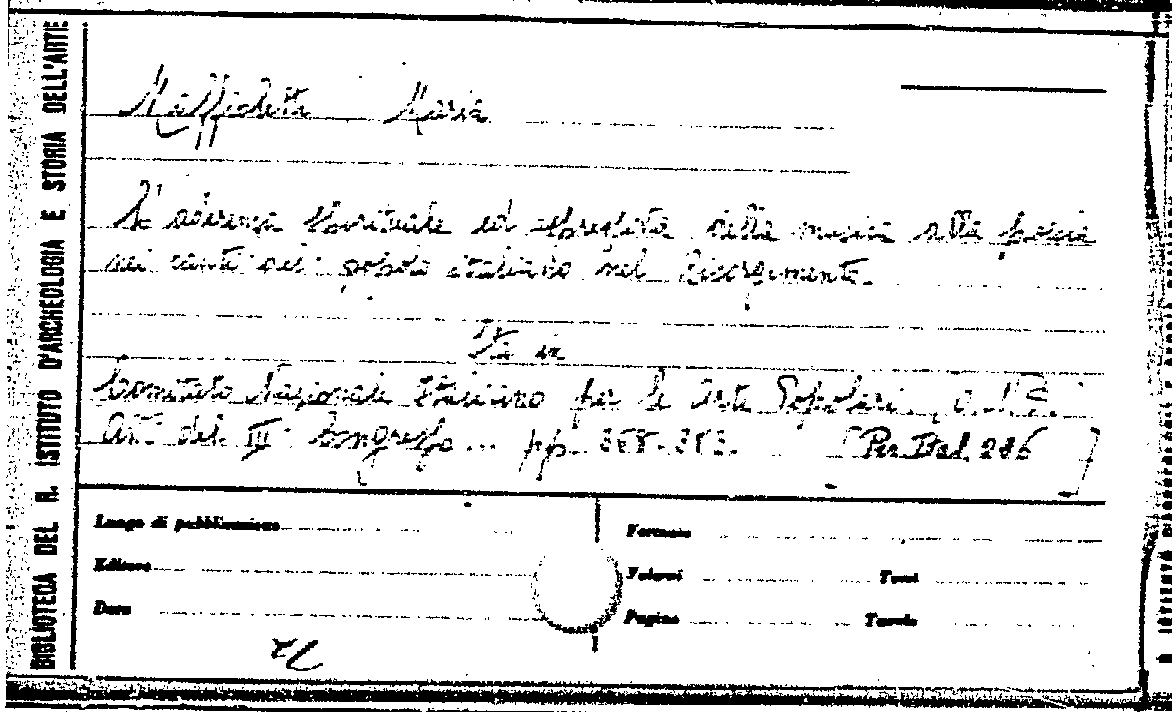 BIBLIOTECA DEL R. ISTITUTO D'ARCHEOLOGIA E STORIA DELL'ARTE
Maffioletti Maria
L'aderenza spirituale ed espressiva della musica alla poesia
nei canti del popolo italiano nel Risorgimento.
Sta in
Comitato Nazionale Italiano per le Arti Popolari,
Atti del III Congresso... pp.
[Per. Ital. 286]
Luogo di pubblicazione
Formato
Editore
Volumi Tomi
Data
Pagine Tavole